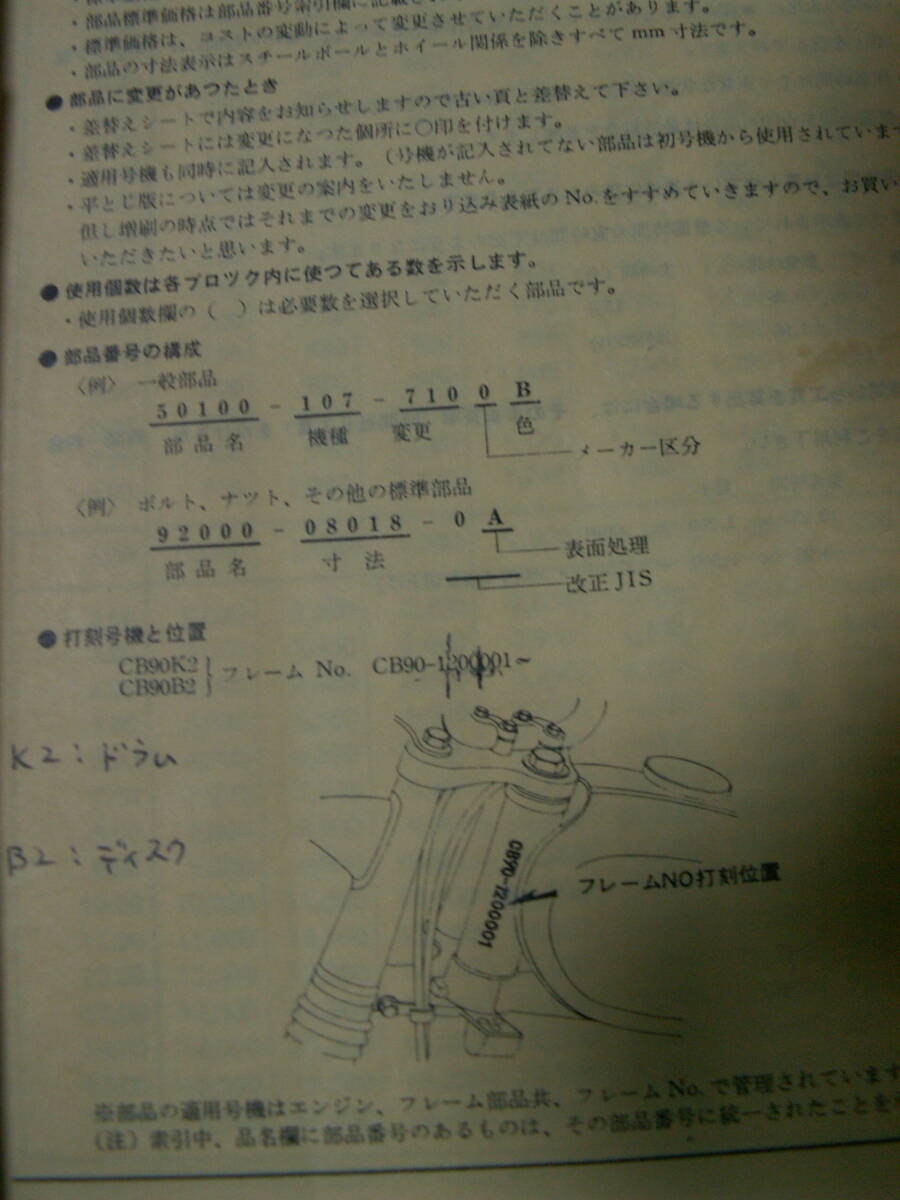 ・部品標準価格は部品番号索引欄に記載され
・標準価格は、コストの変動によって変更させていただくことがあります。
・部品の寸法表示はスチールボールとホイール関係を除きすべてmm寸法です。
●部品に変更があつたとき
・差替えシートで内容をお知らせしますので古い頁と差替えて下さい。
・差替えシートには変更になつた個所に○印を付けます。
・適用号機も同時に記入されます。(号機が記入されてない部品は初号機から使用されています
・平とじ版については変更の案内をいたしません。
但し増刷の時点ではそれまでの変更をおり込み表紙のNo.をすすめていきますので、お買い
いただきたいと思います。
●使用個数は各ブロツク内に使つてある数を示します。
・使用個数欄の( )は必要数を選択していただく部品です。
●部品番号の構成
〈例〉 一般部品
50100-107-7100B
部品名 機種 変更 色
メーカー区分
〈例〉 ボルト、ナツト、その他の標準部品
92000-08018-0A
部品名 寸法
表面処理
改正JIS
●打刻号機と位置
CB90K2
CB90B2
フレーム No. CB90-1200001~
K2:ドラム
B2:ディスク
CB90-1200001
フレームNO打刻位置
※部品の適用号機はエンジン、フレーム部品共、フレームNo.で管理されています
(注) 索引中、品名欄に部品番号のあるものは、その部品番号に統一されたことを